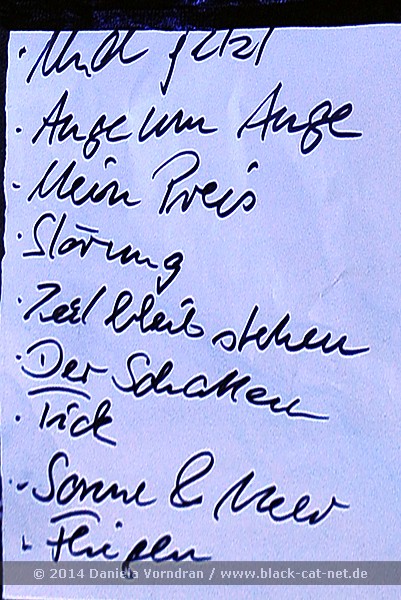 · Und jetzt
· Auge um Auge
- Mein Preis
· Störung
· Zeit bleib stehen
· Der Schatten
· Tick
· Sonne & Meer
· Fliegen
© 2014 Daniela Vorndran / www.black-cat-net.de